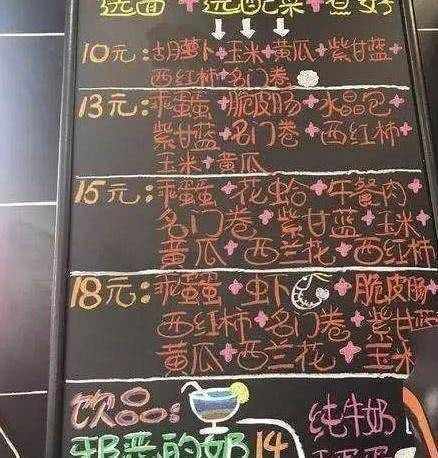 选面+选配菜+煮好
10元:胡萝卜+玉米+黄瓜+紫甘蓝+
西红柿+名门卷
13元:乖蛋+脆皮肠+水晶包+
紫甘蓝+名门卷+西红柿+
玉米+黄瓜
15元:乖蛋+花蛤+午餐肉+
名门卷+紫甘蓝+玉米+
黄瓜+西兰花+西红柿
18元:乖蛋+虾+脆皮肠+
西红柿+名门卷+紫甘蓝+
黄瓜+西兰花+玉米
饮品:
纯牛奶
邪恶的奶14